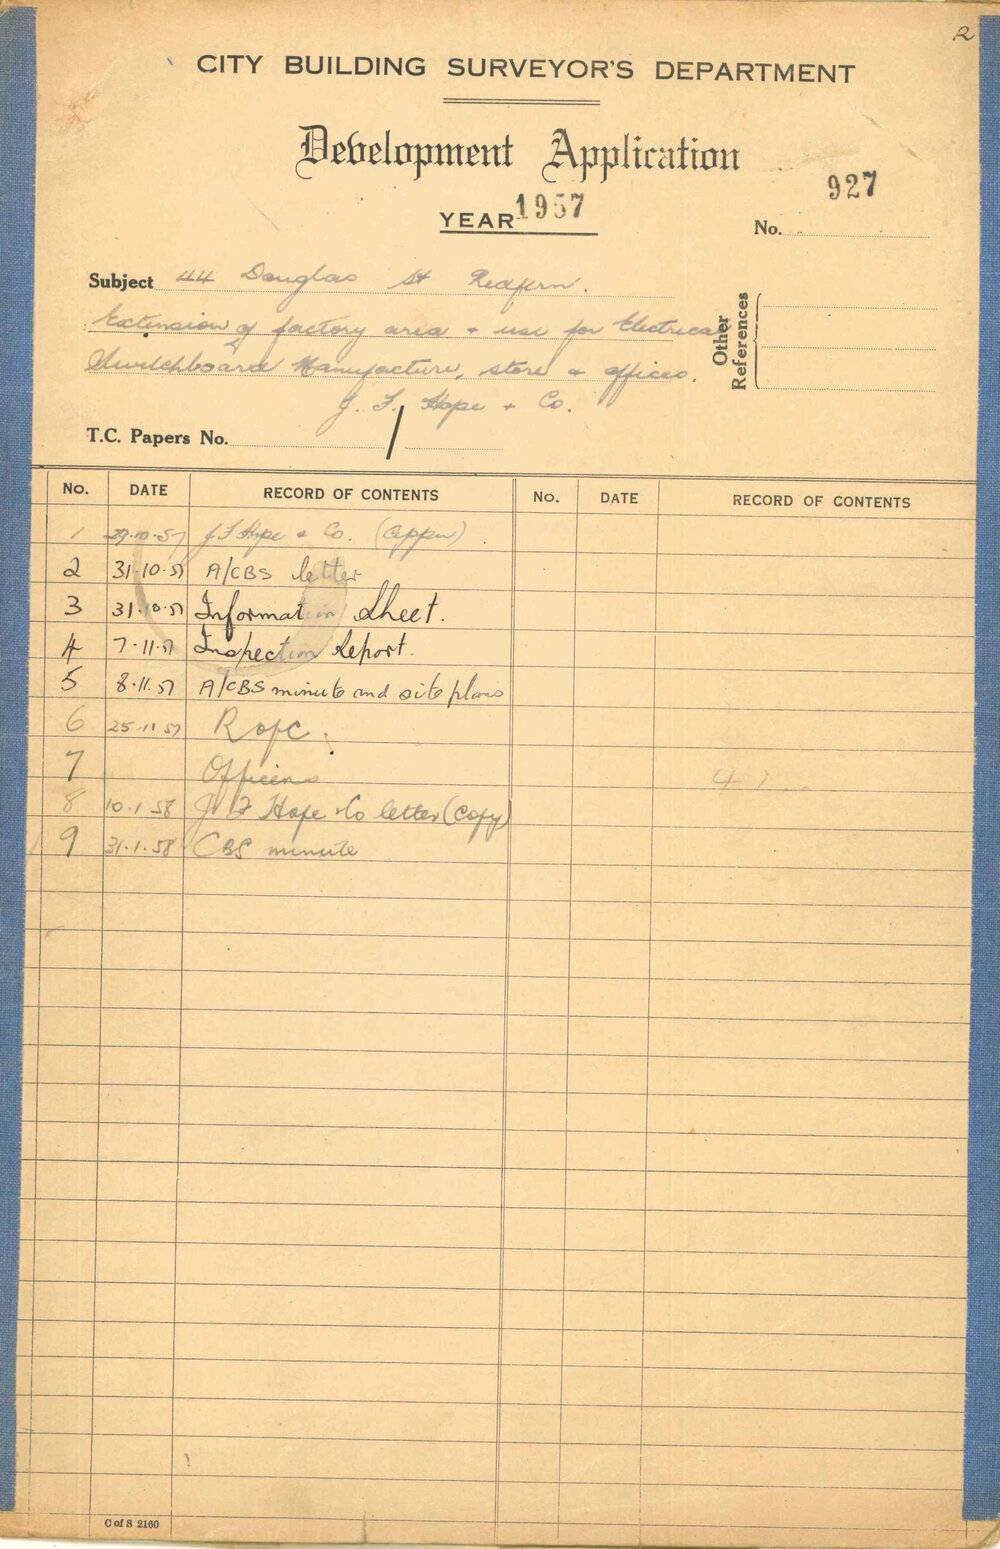 R
CITY BUILDING SURVEYOR'S DEPARTMENT
Development Application
927
YEAR 1957
No.
Subject 44 Douglas St Redfern.
Extension of factory area + use for Electrical
Switchboard Manufacture, store & offices.
J. F. Hope + Co.
Other References
T.C. Papers No. /
No. DATE RECORD OF CONTENTS No. DATE RECORD OF CONTENTS
1 29.10.57 J F Hope & Co. (appn)
2 31.10.57 A/CBS letter
3 31.10.57 Information Sheet.
4 7.11.57 Inspection Report.
5 8.11.57 A/CBS minute and site plans
6 25.11.57
7 Officers
8 10.1.58 J F Hope & Co letter (copy)
9 31.1.58 CBS minute
C of S 2160